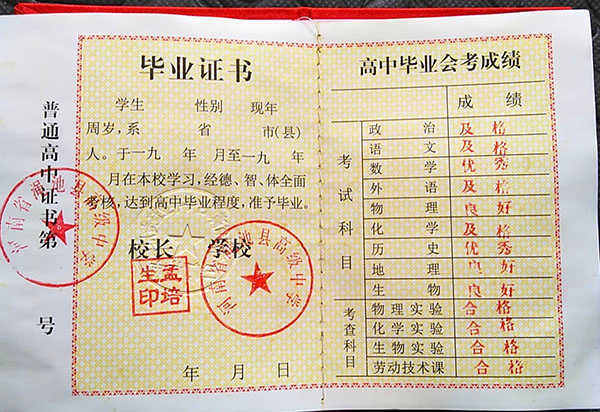 普通高中证书第 号
毕业证书
学生 性别 现年
周岁，系 省 市(县)
人。于一九 年 月至一九 年
月在本校学习，经德、智、体全面
考核，达到高中毕业程度，准予毕业。
校长 学校
孟培
生印
河南省渑池县高级中学
河南省渑池县高级中学
年 月 日
高中毕业会考成绩
成绩
考试科目
政治 及格
语文 及格
数学 优秀
外语 及格
物理 良好
化学 及格
历史 优秀
地理 良好
生物 良好
考查科目
物理实验 合格
化学实验 合格
生物实验 合格
劳动技术课 合格